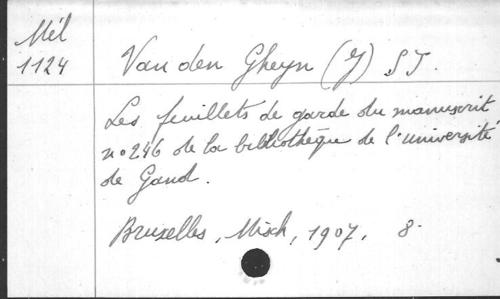 Mél
1124
Van den Gheyn (J) S J.
Les feuillets de garde du manuscrit
no 246 de la bibliothèque de l'université
de Gand.
Bruxelles, Misch, 1907. 8.